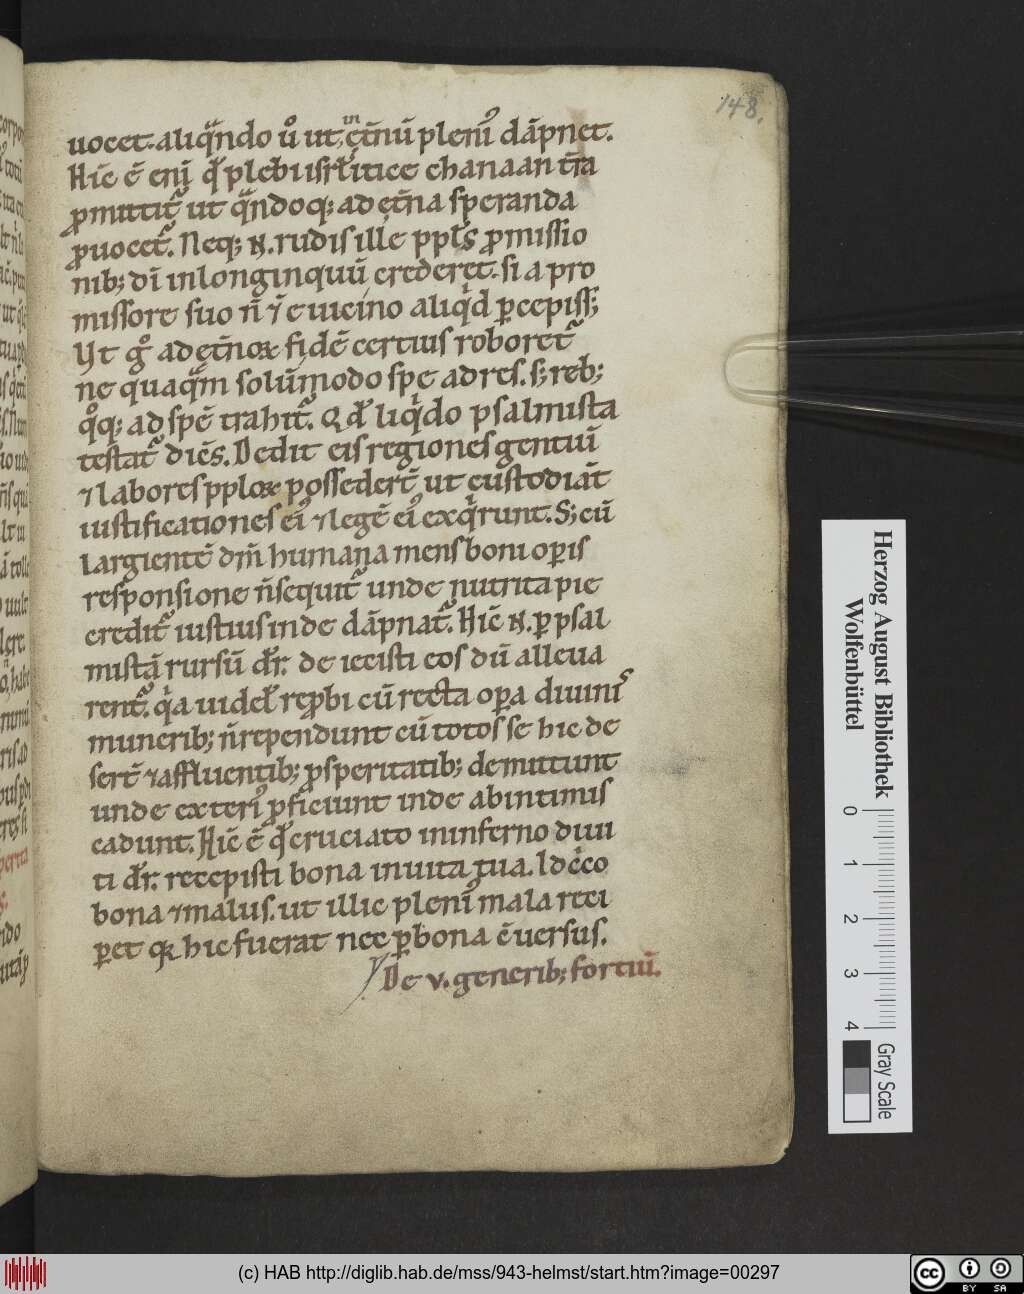 148.
uocet. aliqͣndo u᷒o ut in et̄nū pleni᷒ dāpnet.
Hīc ē eni᷒ qđ plebi isrł'itice chanaan t̄ra
ꝓmittit᷑ ut qͣndoq; ad et̄na speranda
ꝓuocet᷑. Neq; n̄. rudis ille pplʼs ꝓmissio
nib; di̅ in longinquū crederet. si a pro
missore suo n̄ ⁊ e uicino aliqͥd ꝑcepiss;
Ut gͦ ad et̄noꝝ fidē certius roboret᷑
ne quaqͣm solūmodo spe ad res. s; reb;
qͦq; ad spē trahit᷑. Qđ liqͥdo psalmista
testat᷑ dicēs. Dedit eis regiones gentiū
⁊ labores pploꝝ possedert̄ ut custodiāt
iustificationes ei᷒ ⁊ legē ei᷒ exqͥrunt. S; cū
largientē dn̄m humana mens boni oꝑis
responsione n̄ sequit᷑ unde nutrita pie
credit᷑ iustius inde dāpnat᷑. Hīc n̄. ꝑ psal
mistā rursū dr̄. de iecisti eos dū alleua
rent᷑. qͥa uideł reꝓbi cū recta oꝑa diuini᷒
munerib; n̄ rependunt cū totos se hic de
sert̄ ⁊ affluentib; ꝓsperitatib; demittunt
unde exteri᷒ ꝓficiunt inde ab intimis
cadunt. Hīc ē qđ cruciato in inferno diui
ti dr̄. recepisti bona in uita tua. Idcͥco
bona ⁊ malus. ut illic pleni᷒ mala reci
ꝑet qꝛ hic fuerat nec ꝑ bona ēuersus.
De v. generib; fortiū.
Herzog August Bibliothek
Wolfenbüttel
0 1 2 3 4
Gray Scale
(c) HAB http://diglib.hab.de/mss/943-helmst/start.htm?image=00297
cc BY SA